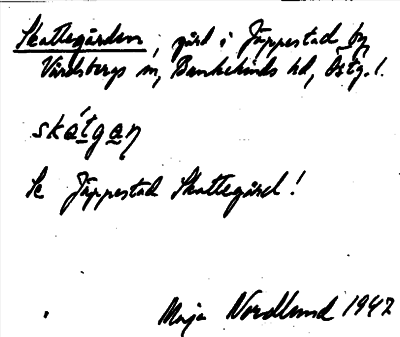 Skattegården, gård i Jäppestad by
Vårdsbergs sn, Bankekinds hd, Östg. l.
skátgan
Se Jäppestad Skattegård!
Maja Nordlund 1942